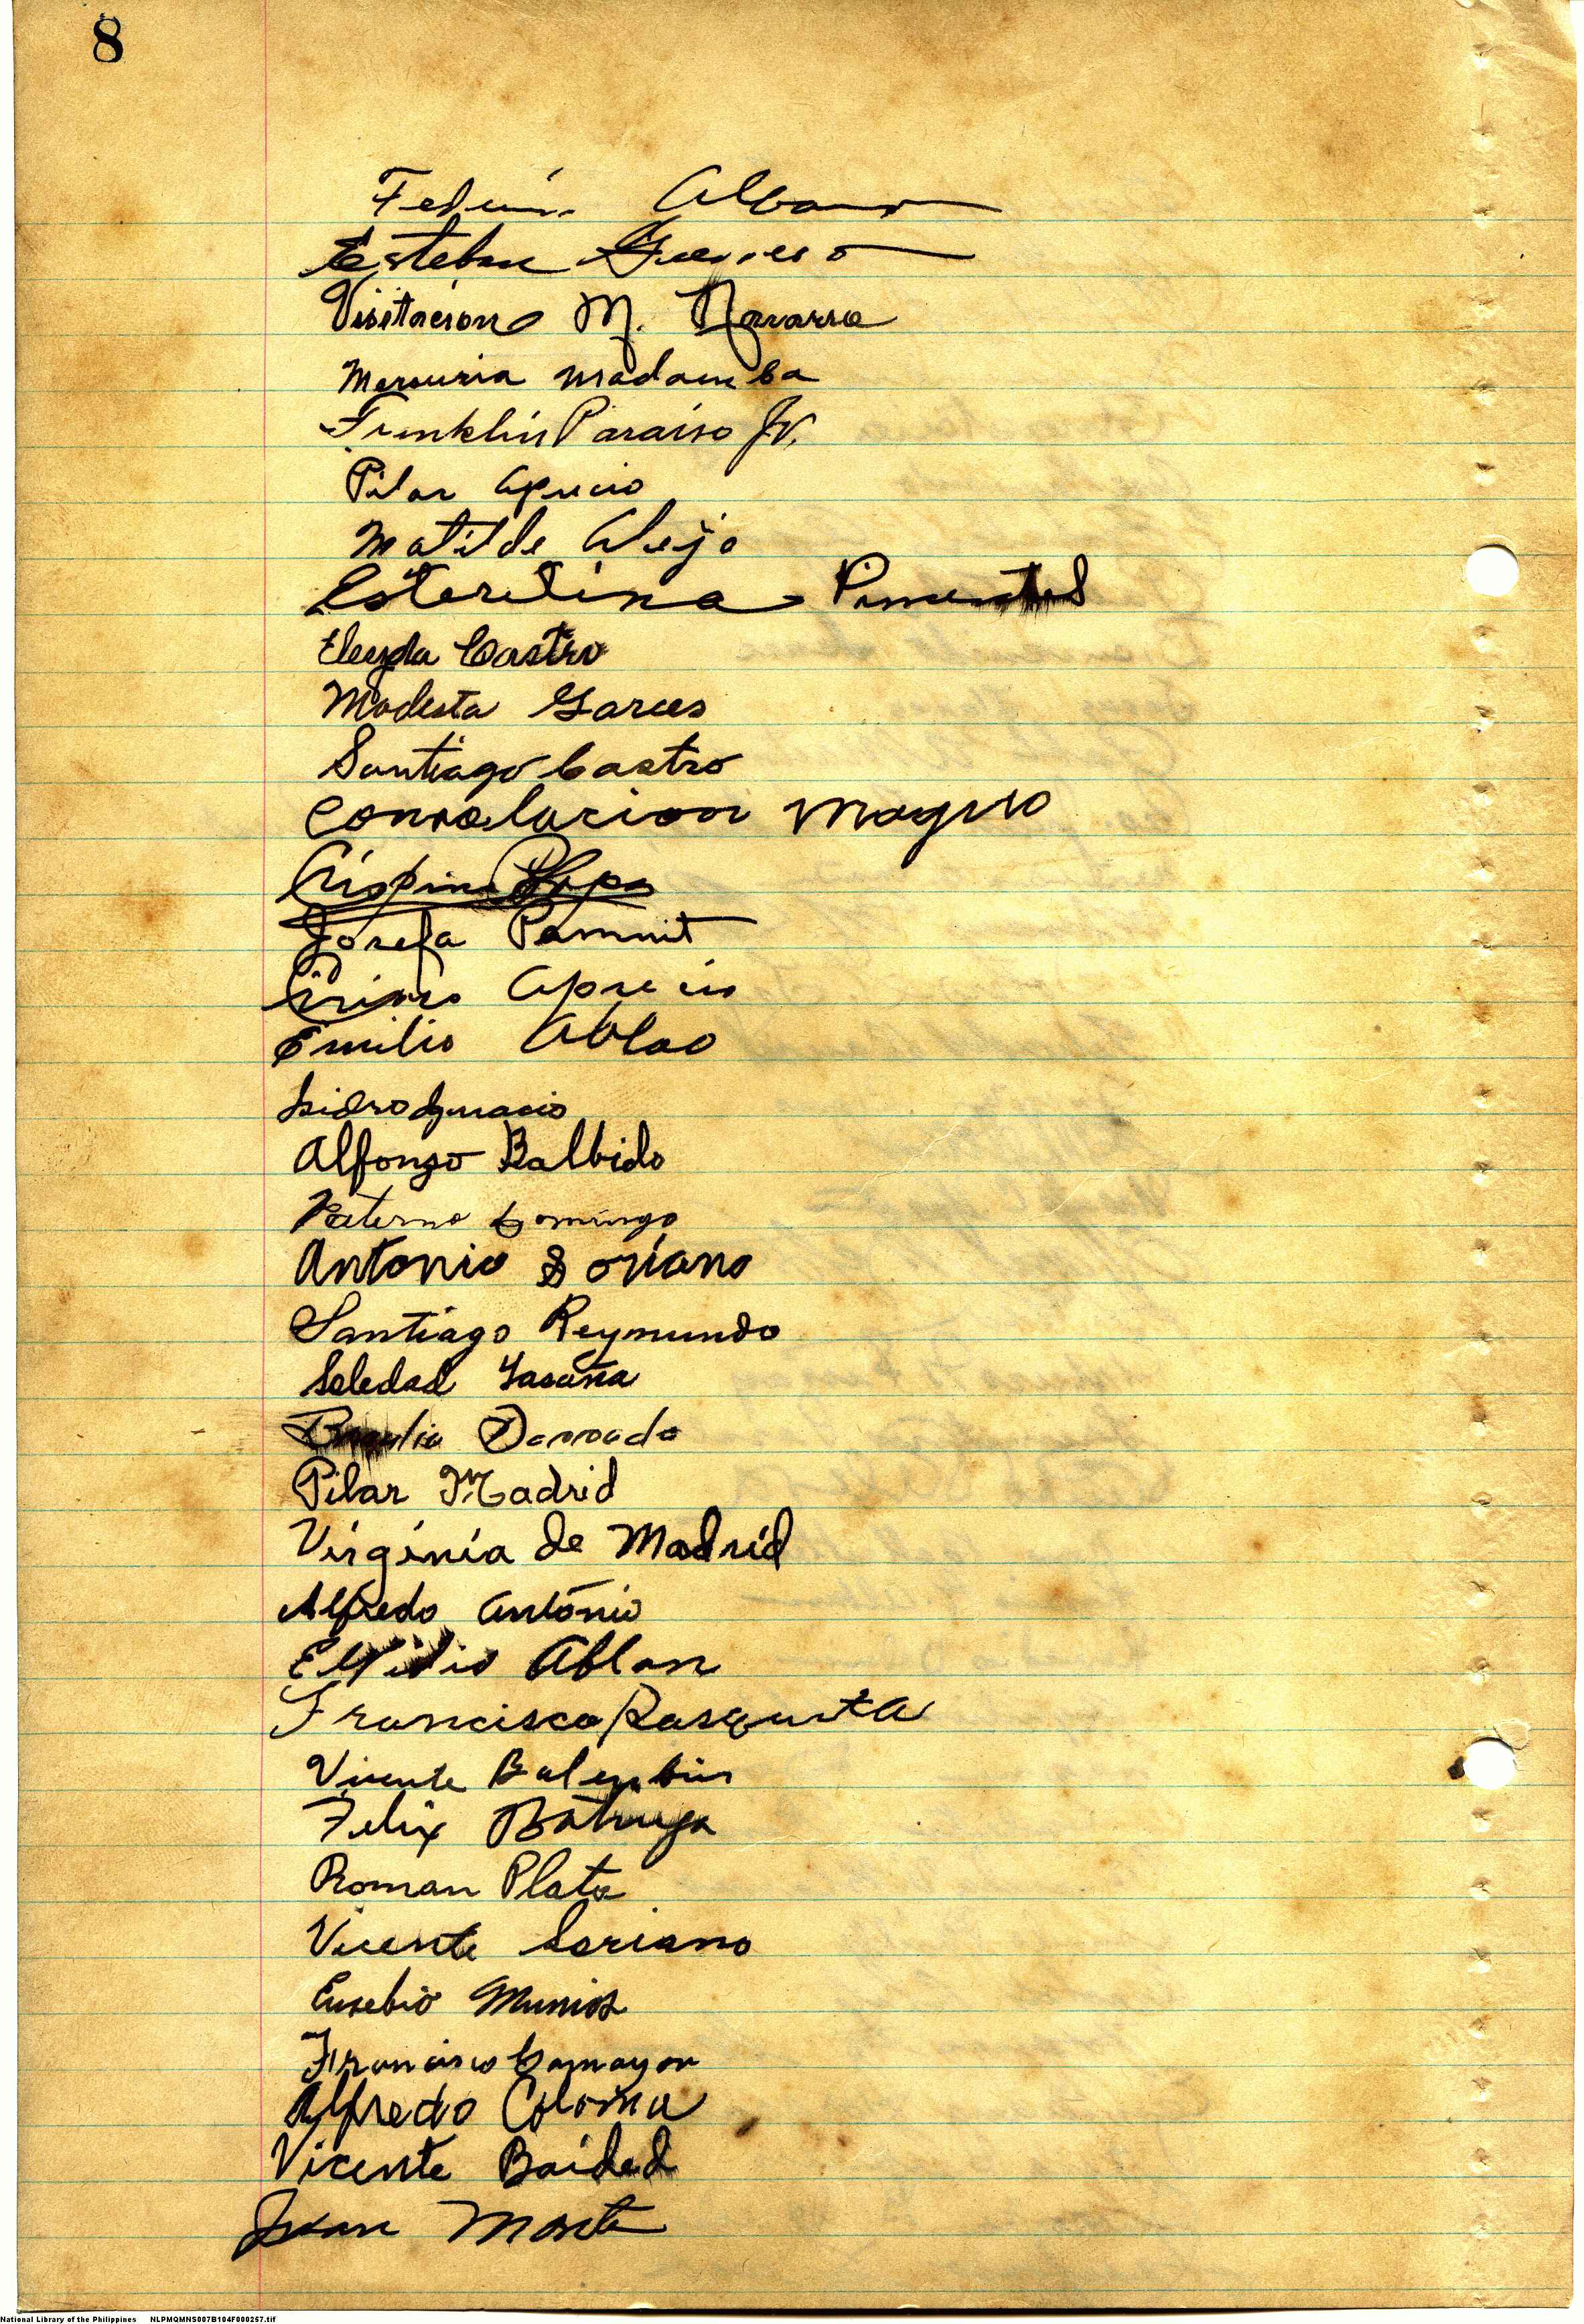 8
Alban
Esteban Guerrero
Visitacion M. Navarro
Mercuria Madamba
Franklin Paraiso Jr.
Pilar Apricio
Matilde Alejo
Esterlina Pimentel
Eleyda Castro
Modesta Garces
Santiago Castro
Consolacion Magno
Crispin
Josefa Pammit
Apricio
Emilio Ablao
Isidro Ygnacio
Alfonso Balbido
Paterno Domingo
Antonio Soriano
Santiago Reymundo
Soledad Yasaña
Braulia
Pilar Madrid
Virginia de Madrid
Alfredo Antonio
Elpidio Ablan
Francisco Rasqueta
Vicente Balenbin
Felix Batuga
Roman Plata
Vicente Soriano
Eusebio Munios
Francisco Camayon
Alfredo Coloma
Vicente Baided
Juan Monte
National Library of the Philippines NLPMQMNS007B104F000257.tif